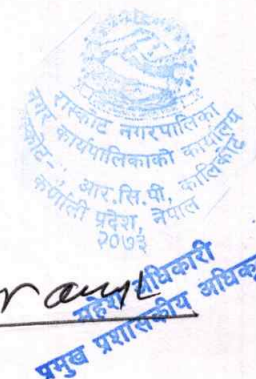 रास्कोट नगरपालिका
नगर कार्यपालिकाको कार्यालय
आर.सि.पी, कालिकोट
कर्णाली प्रदेश, नेपाल
२०७३
महेश अधिकारी
प्रमुख प्रशासकीय